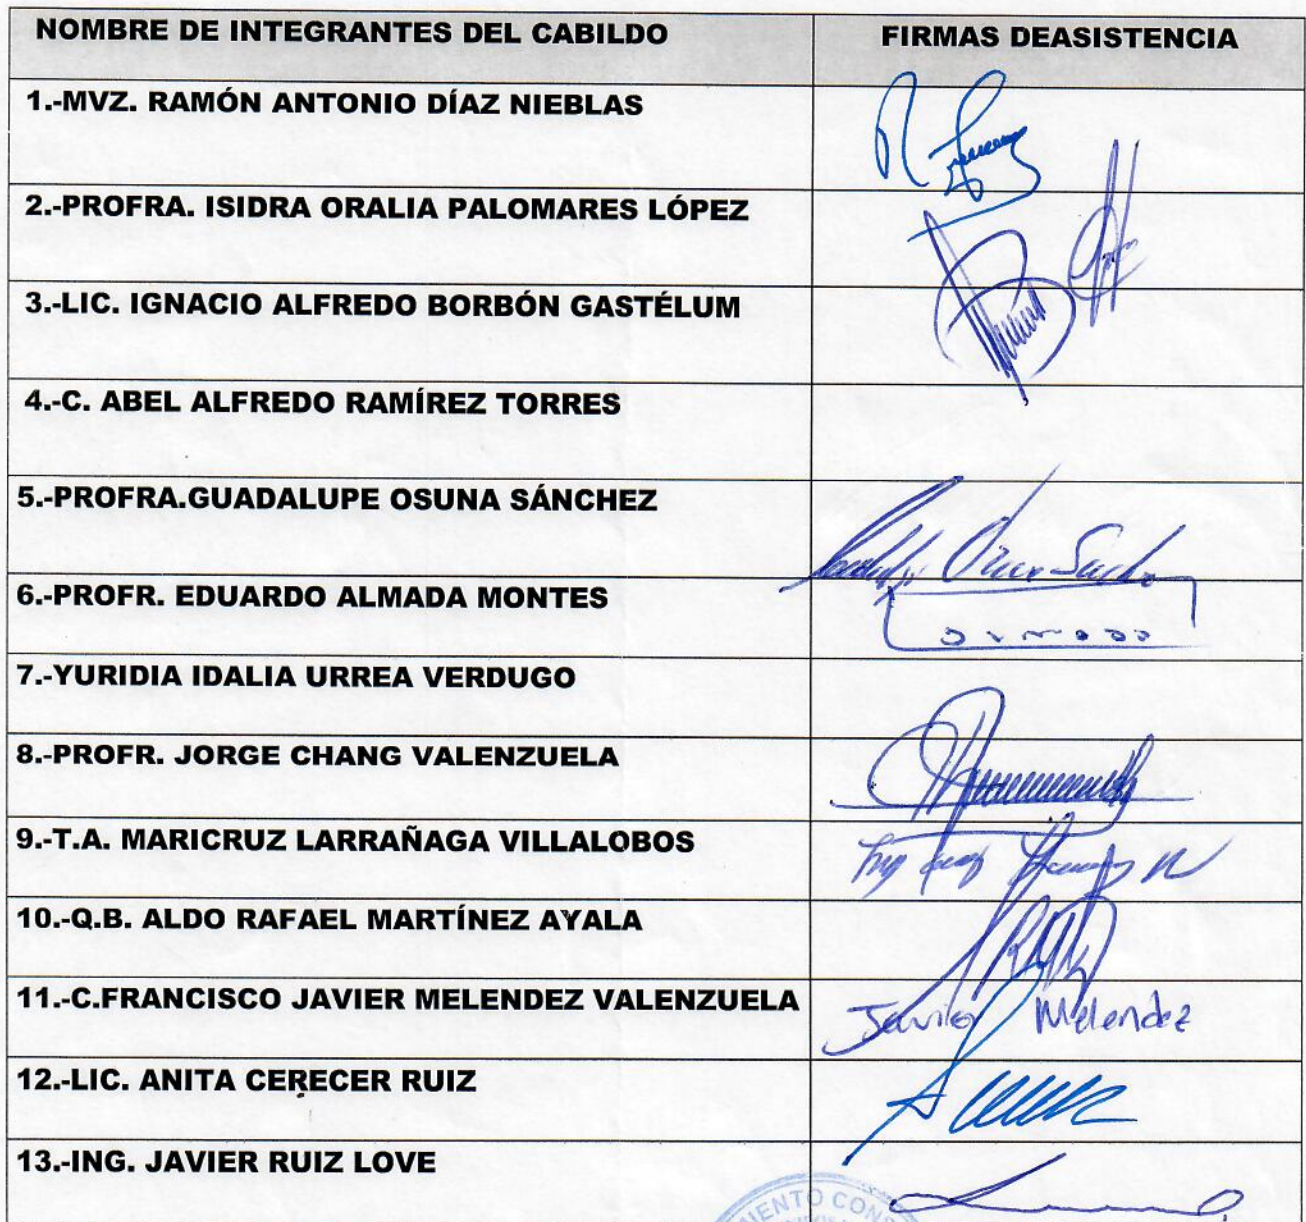 NOMBRE DE INTEGRANTES DEL CABILDO FIRMAS DEASISTENCIA
1.-MVZ. RAMÓN ANTONIO DÍAZ NIEBLAS
2.-PROFRA. ISIDRA ORALIA PALOMARES LÓPEZ
3.-LIC. IGNACIO ALFREDO BORBÓN GASTÉLUM
4.-C. ABEL ALFREDO RAMÍREZ TORRES
5.-PROFRA.GUADALUPE OSUNA SÁNCHEZ
6.-PROFR. EDUARDO ALMADA MONTES
7.-YURIDIA IDALIA URREA VERDUGO
8.-PROFR. JORGE CHANG VALENZUELA
9.-T.A. MARICRUZ LARRAÑAGA VILLALOBOS
10.-Q.B. ALDO RAFAEL MARTÍNEZ AYALA
11.-C.FRANCISCO JAVIER MELENDEZ VALENZUELA Javier Melendez
12.-LIC. ANITA CERECER RUIZ
13.-ING. JAVIER RUIZ LOVE